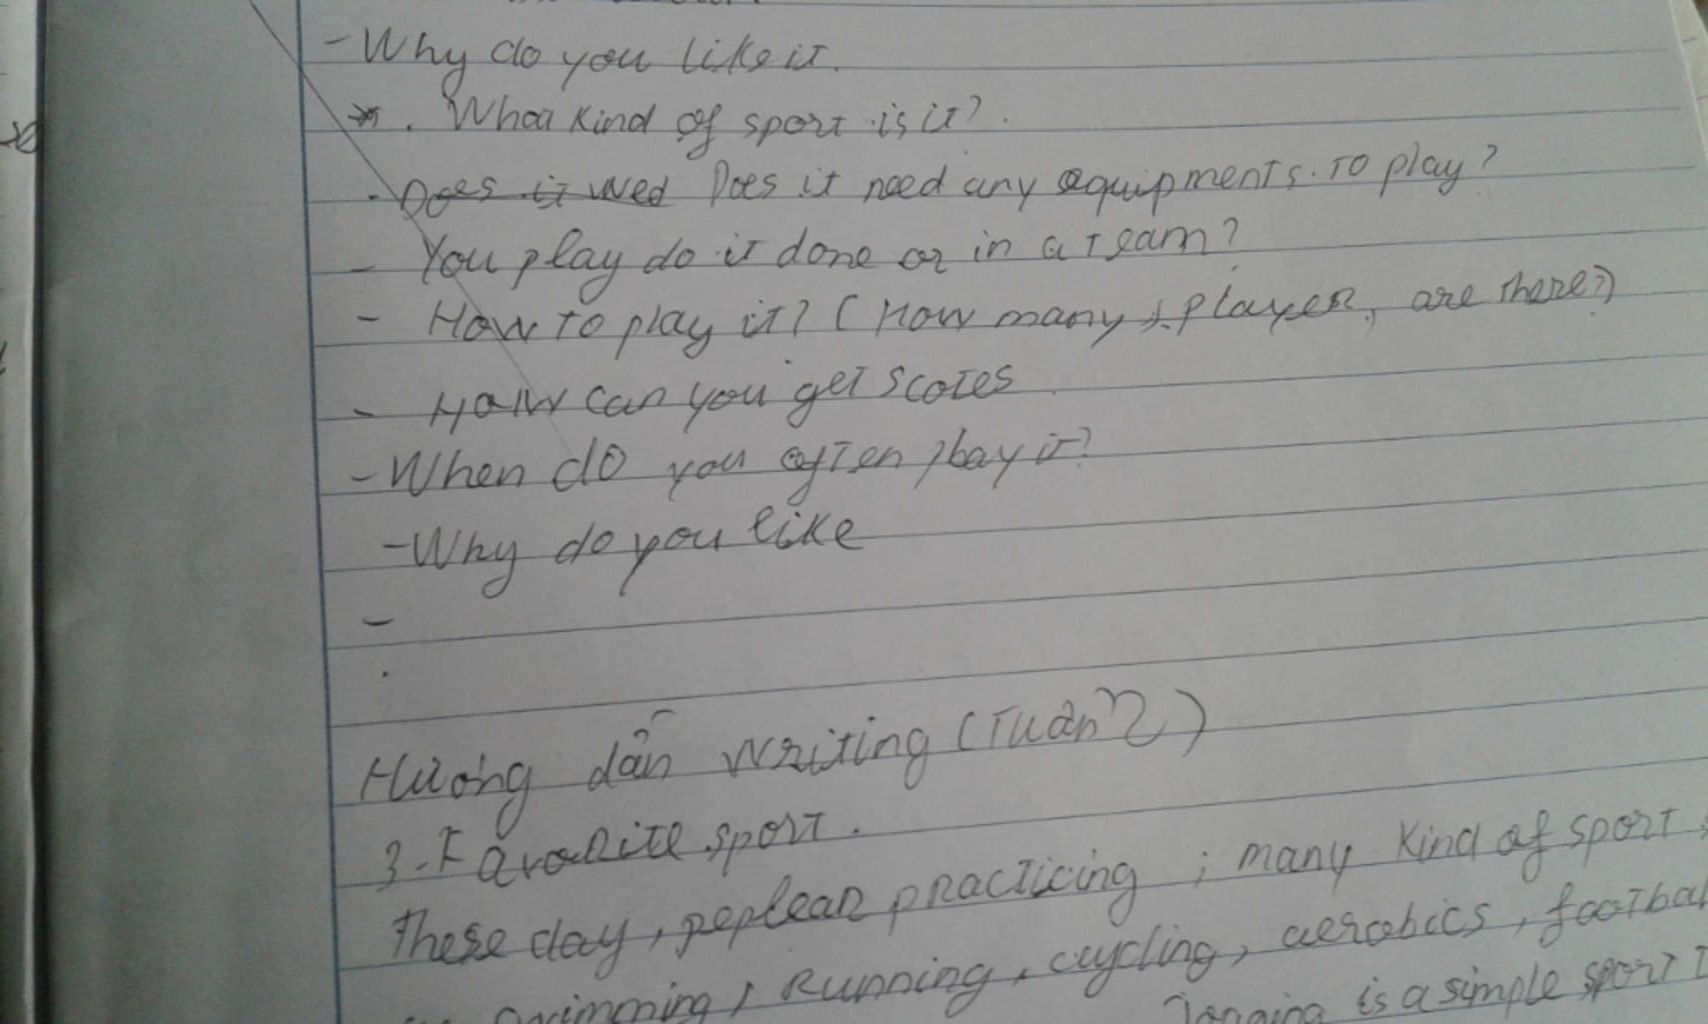 - Why do you like it.
. What kind of sport is it?.
- Does it need Does it need any equipments. To play?
- You play do it done or in a team?
- How to play it? ( How many player, are there?)
- How can you get scores
- When do you often play it?
- Why do you like
-
.
Hướng dẫn writing (Tuần 2)
3. Favorite sport.
These day, peplear practicing ; many kind of sport
swimming, Running, cycling, aerobics, footbal
Jogging is a simple sport